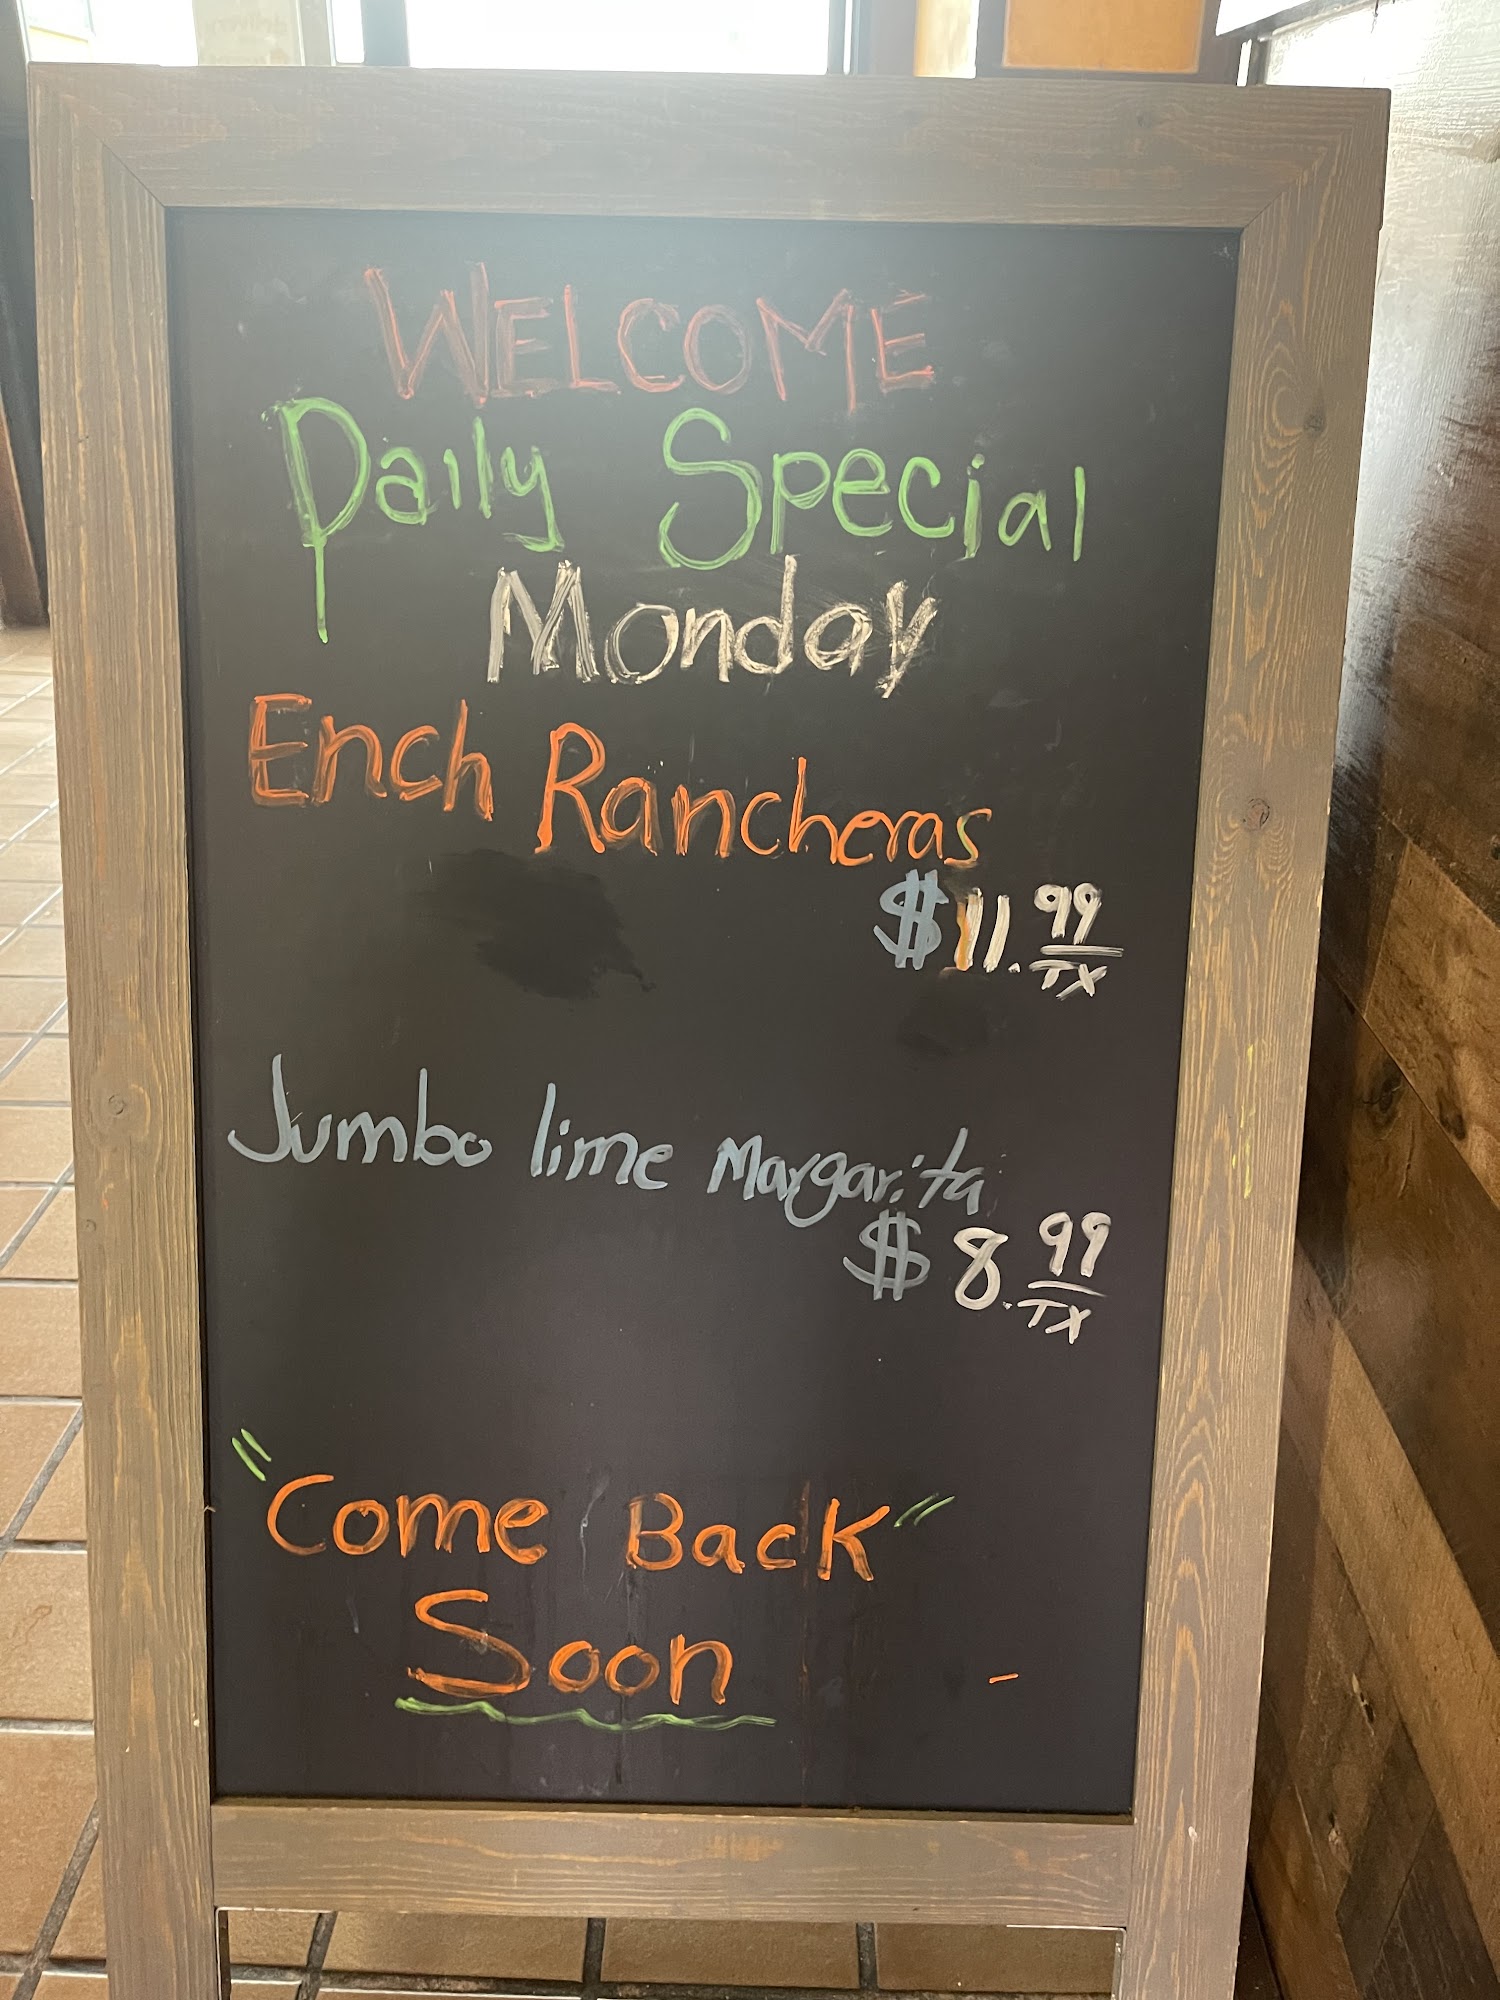 WELCOME
Daily Special
Monday
Ench Rancheras
$11.99
TX
Jumbo lime Margarita
$8.99
TX
"Come Back"
Soon